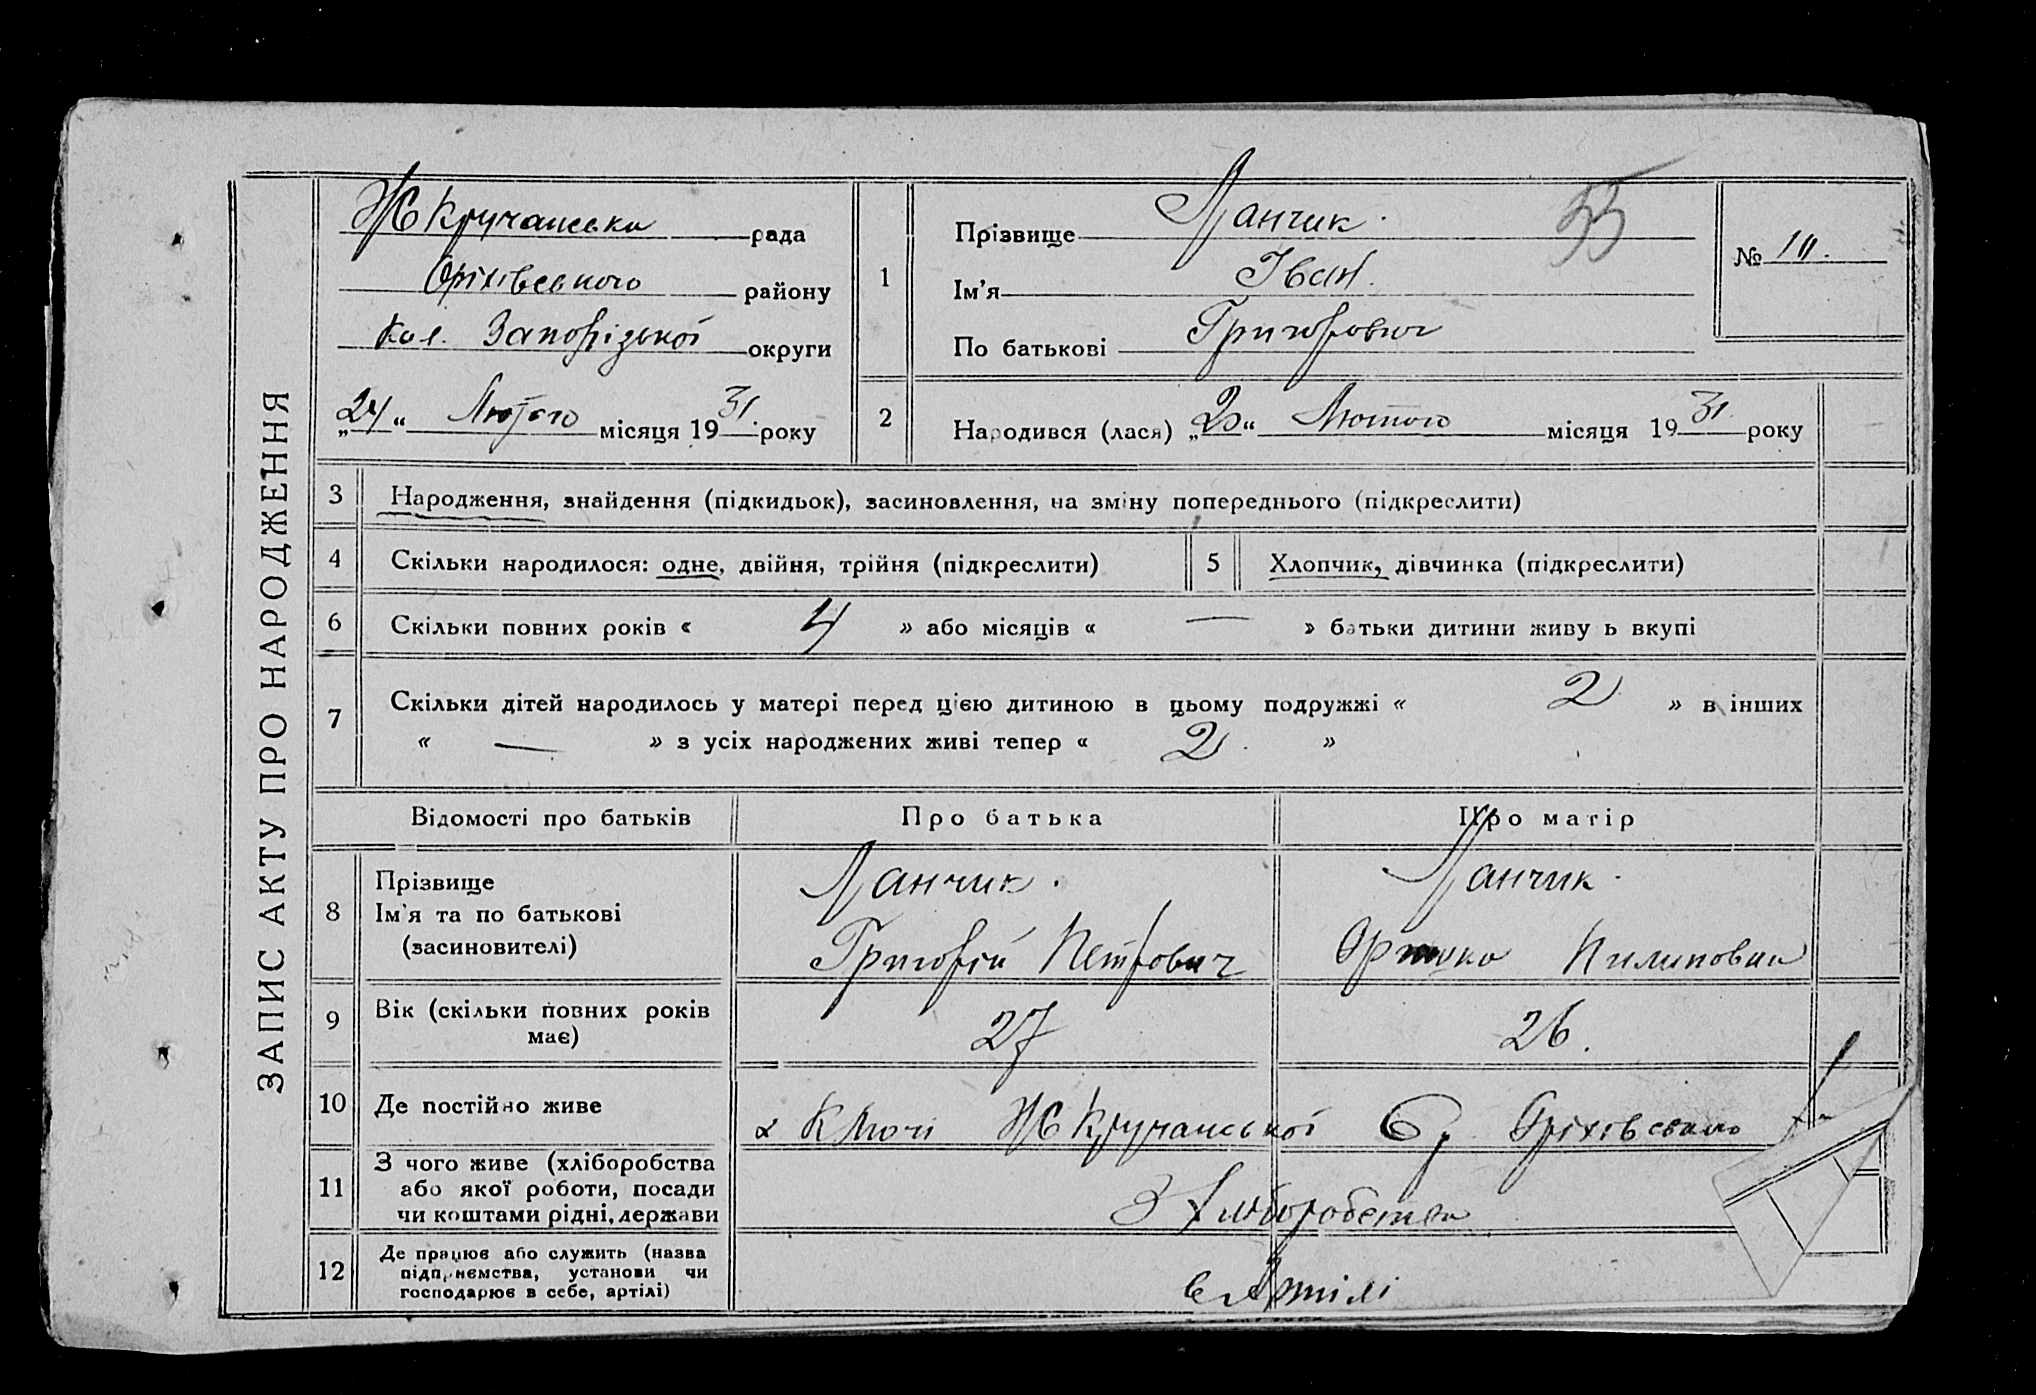 ЗАПИС АКТУ ПРО НАРОДЖЕННЯ
рада
Оріхівського району
Кол. Запорізької округи
„24“ Лютого місяця 1931 року
1
Прізвище Ланчик.
Ім'я Іван.
По батькові Григорович
55
№ 10.
2
Народився (лася) „20“ Лютого місяця 1931 року
3 Народження, знайдення (підкидьок), засиновлення, на зміну попереднього (підкреслити)
4 Скільки народилося: одне, двійня, трійня (підкреслити)
5 Хлопчик, дівчинка (підкреслити)
6 Скільки повних років « 4 » або місяців « — » батьки дитини живу ь вкупі
7 Скільки дітей народилось у матері перед цією дитиною в цьому подружжі « 2 » в інших
« — » з усіх народжених живі тепер « 2. »
Відомості про батьків Про батька Про матір
8 Прізвище
Ім'я та по батькові
(засиновителі)
Ланчик.
Григорій Петрович
Ланчик.
Пилиповна
9 Вік (скільки повних років
має)
27
26.
10 Де постійно живе
Оріхівського
11 З чого живе (хліборобства
або якої роботи, посади
чи коштами рідні, держави
З хліборобства
12 Де працює або служить (назва
підприємства, установи чи
господарює в себе, артілі)
в Артілі